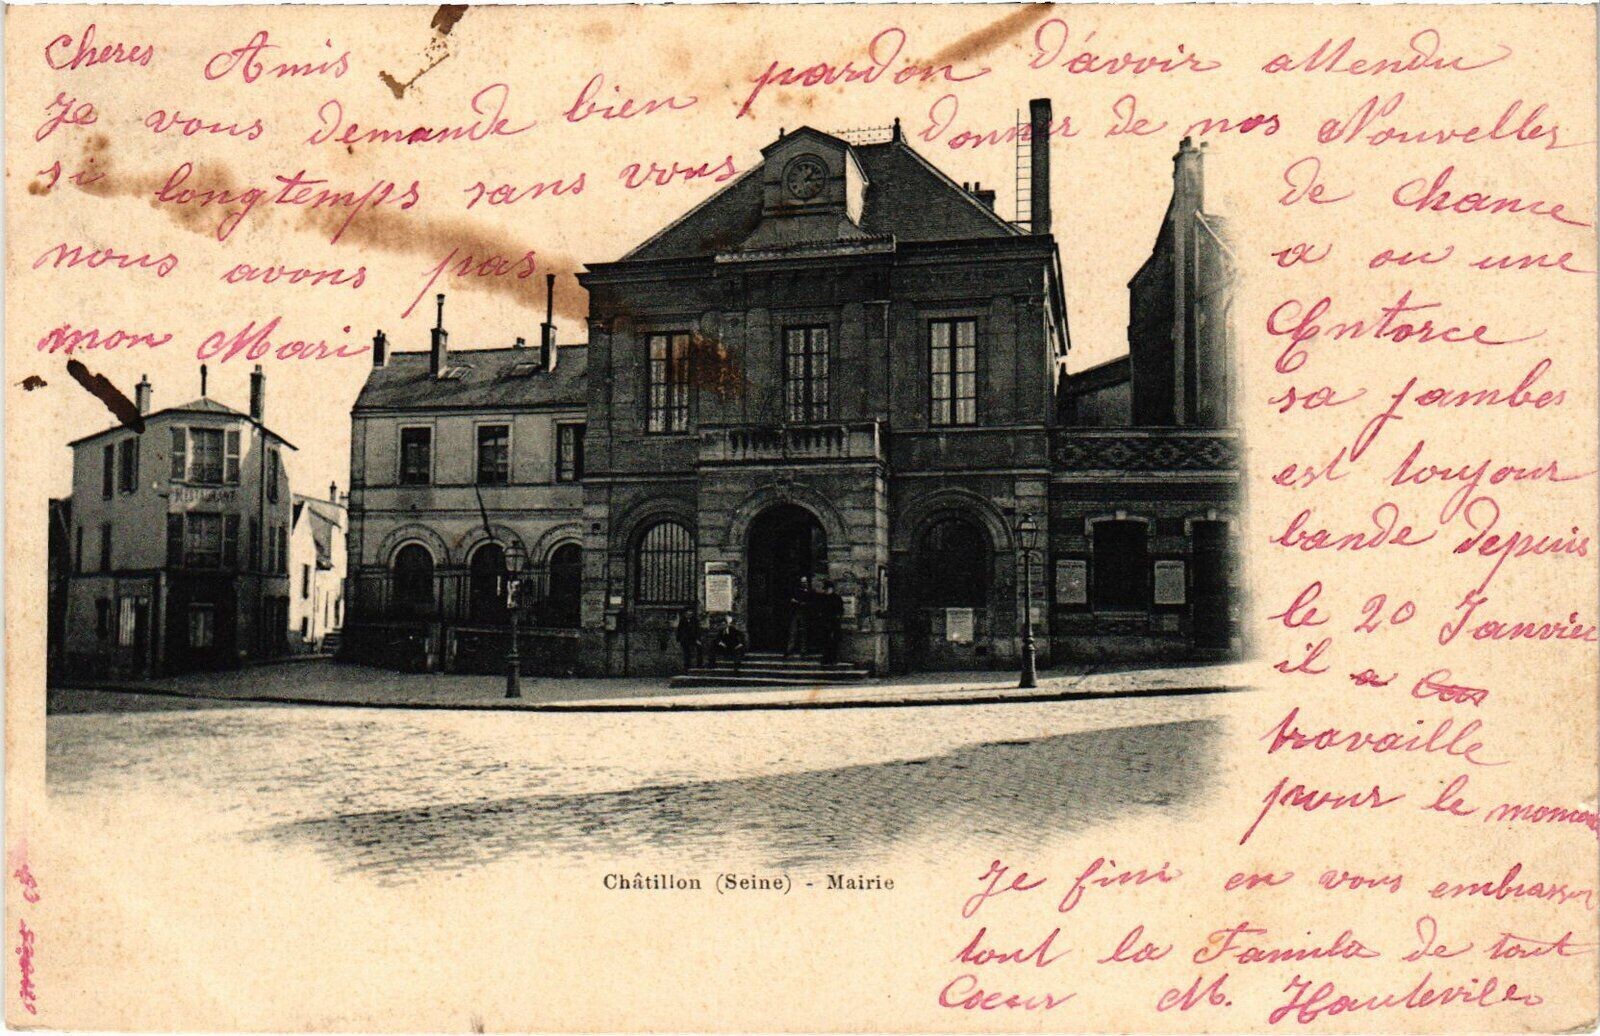 Cheres Amis
Je vous demande bien pardon d'avoir attendu
si longtemps sans vous donner de nos Nouvelles
nous avons pas de chance
mon Mari a eu une
Entorce
sa jambes
est toujour
bande depuis
le 20 Janvier
il a
travaille
pour le moment
Je fini en vous embrasser
tout la Famille de tout
Coeur M. Hauteville
RESTAURANT
Châtillon (Seine) - Mairie